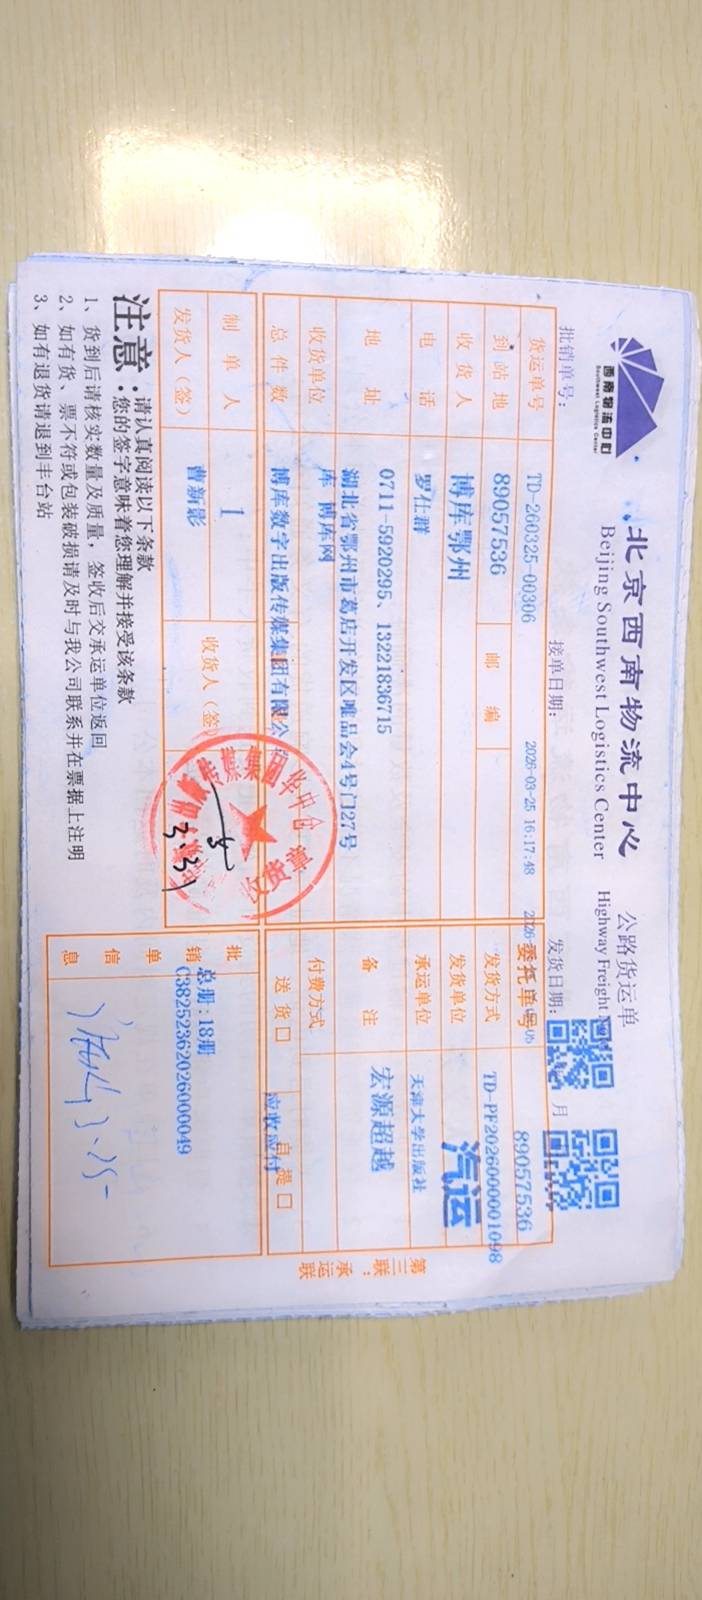 西南物流中心
Southwest Logistics Center
北京西南物流中心 公路货运单
Beijing Southwest Logistics Center Highway Freight
批销单号： 接单日期： 2026-03-25 16:17:48 发货日期： 月
货运单号 TD-260325-00306 委托单号 89057536
到站地 89057536 邮编 发货方式 TD-PF2026000001098
收货人 博库鄂州 发货单位 汽运
电话 罗仕群 承运单位 天津大学出版社
地址 0711-5920295、13221836715 备注 宏源超越
湖北省鄂州市葛店开发区唯品会4号门27号
库 博库网
收货单位 博库数字出版传媒集团有限公 付费方式
总件数 送货口 自提口
应收应付
制单人 1 收货人（签）
发货人（签） 曹新影
3.31
批销单信息
总册：18册
C38252362026000049
3.25
第三联：承运联
注意：请认真阅读以下条款
您的签字意味着您理解并接受该条款
1、货到后请核实数量及质量，签收后交承运单位返回
2、如有货、票不符或包装破损请及时与我公司联系并在票据上注明
3、如有退货请退到丰台站
传媒集团华中仓
收货章